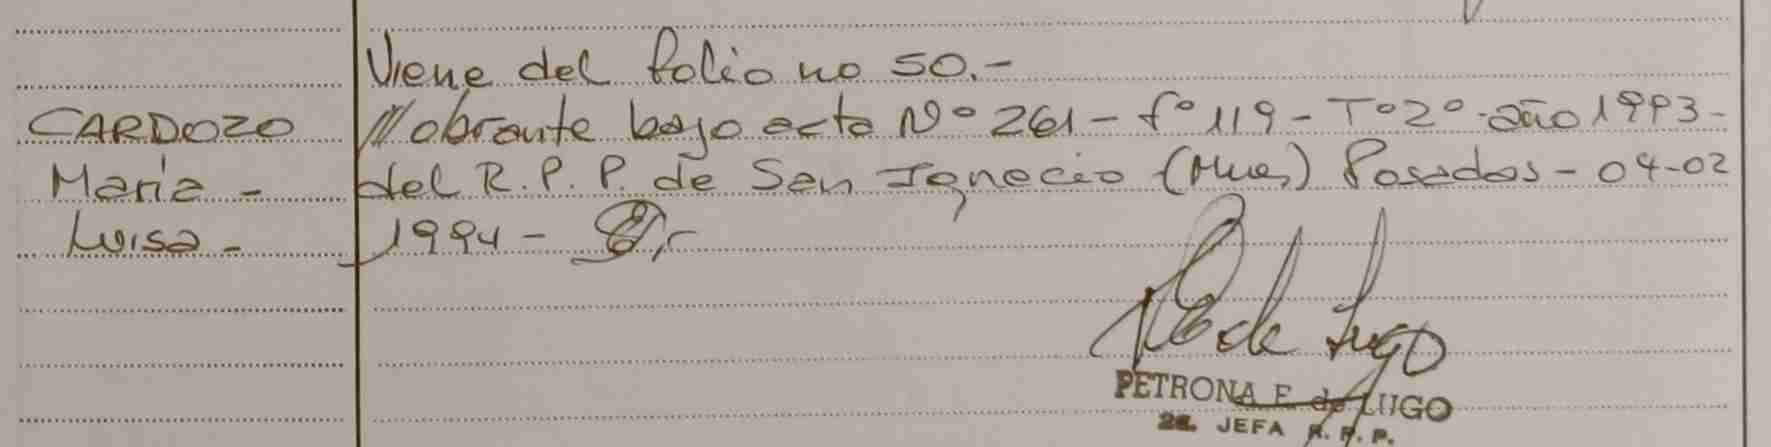 Viene del folio no 50.-
CARDOZO //obrante bajo acta Nº 261 - fº 119 - Tº 2º - año 1993 -
María - del R.P.P. de San Ignacio (Mnes) Posadas - 04-02
Luisa - 1994 -
PETRONA E. de LUGO
2a. JEFA R.P.P.